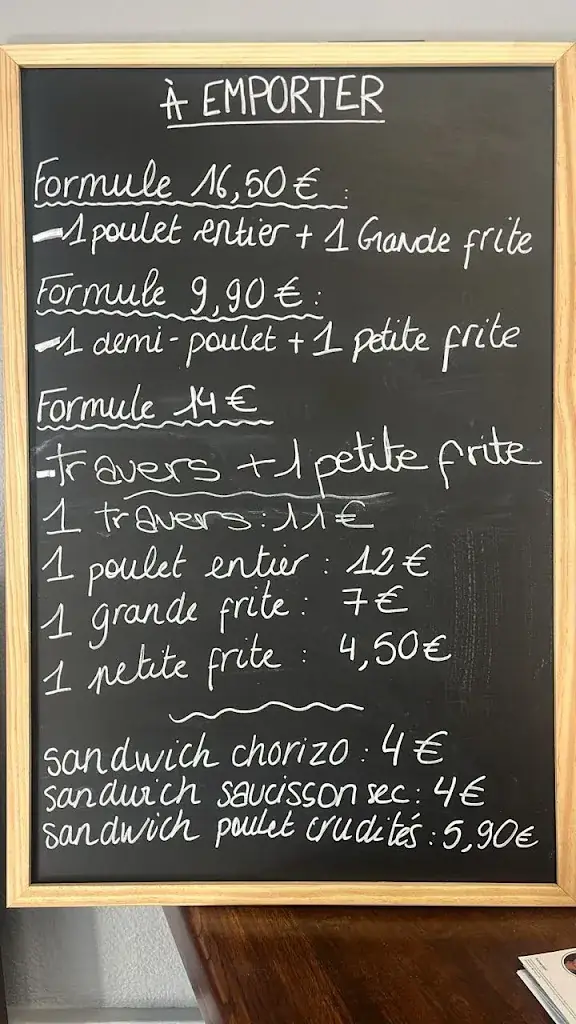 À EMPORTER
Formule 16,50 € :
-1 poulet entier + 1 Grande frite
Formule 9,90 € :
-1 demi-poulet + 1 petite frite
Formule 14 €
-travers + 1 petite frite
1 travers : 11 €
1 poulet entier : 12 €
1 grande frite : 7 €
1 petite frite : 4,50 €
sandwich chorizo : 4 €
sandwich saucisson sec : 4 €
sandwich poulet crudités : 5,90 €